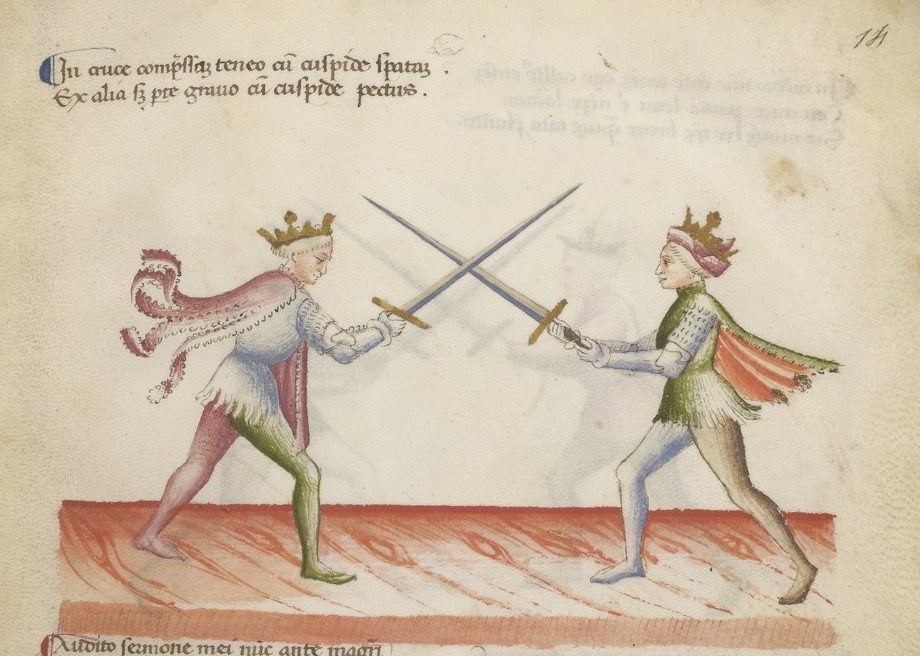 14
In cruce comp̄ssaʒ teneo cū cuspide spataʒ .
Ex alia sʒ pte grauo cū cuspide pectus .
Audito sermone mei nūc ante magri